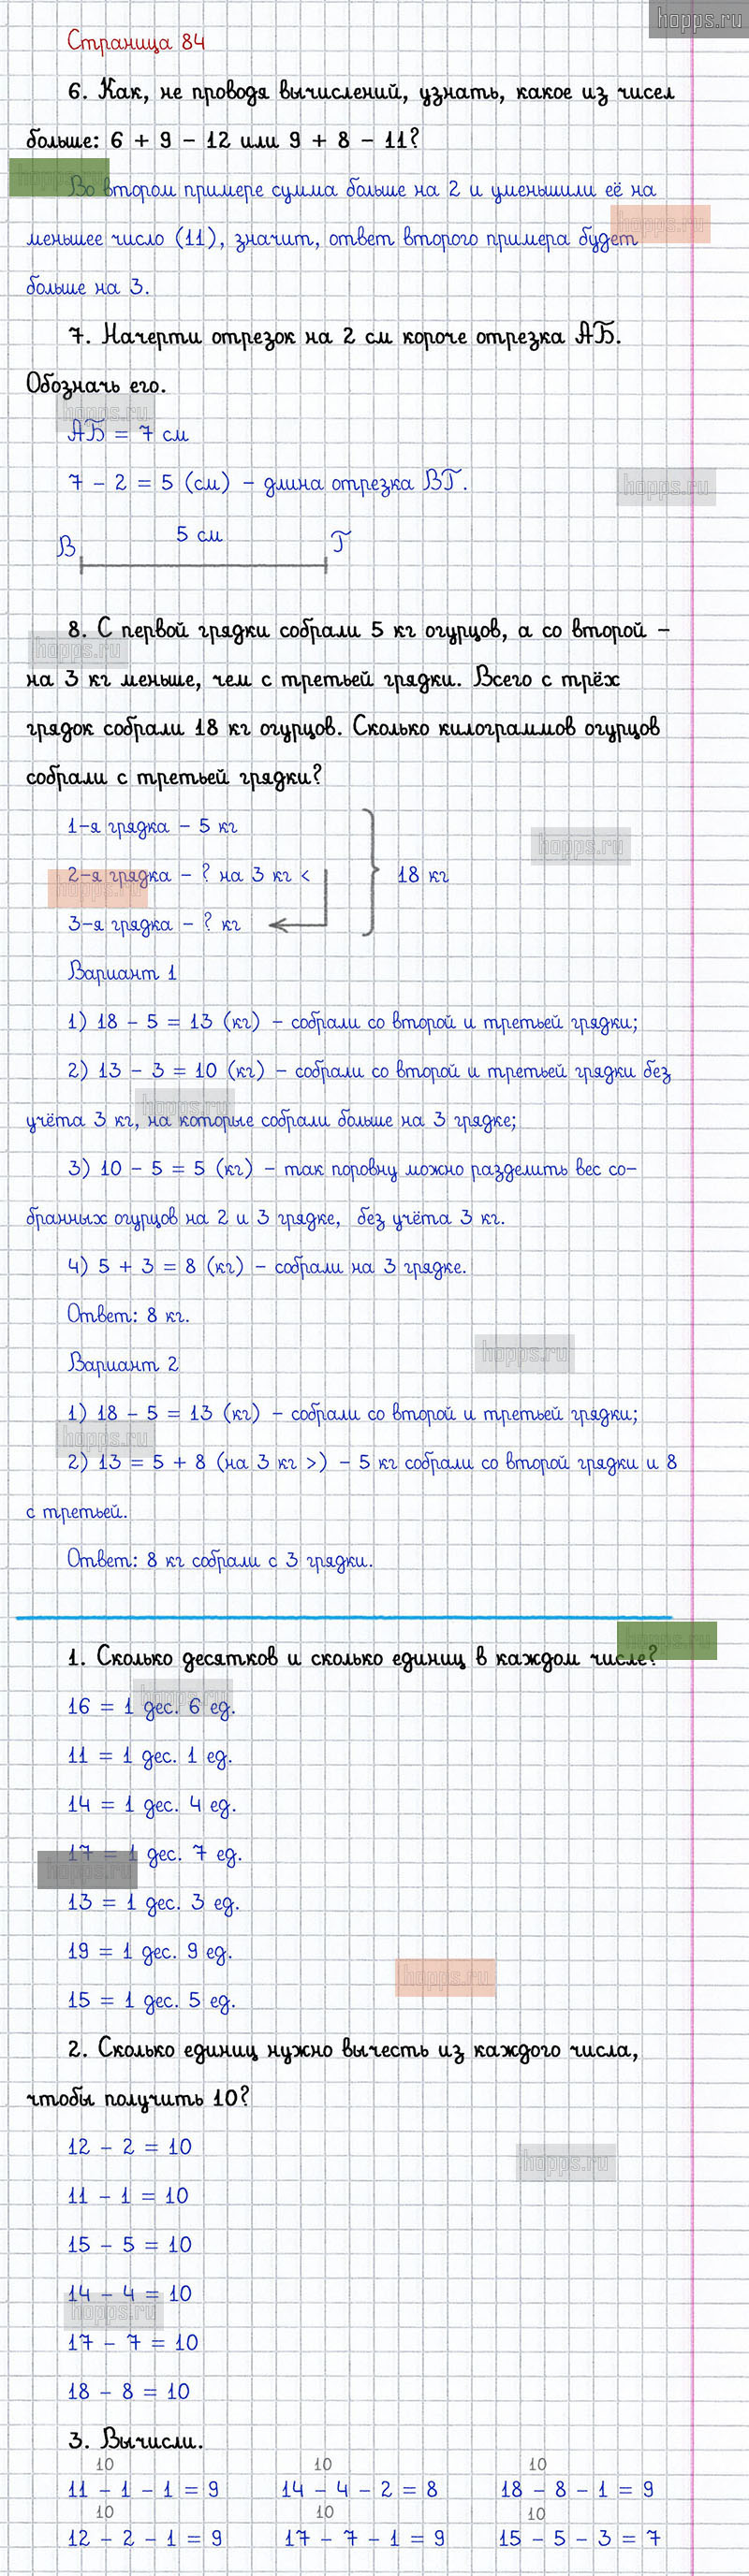 hopps.ru
Страница 84
6. Как, не проводя вычислений, узнать, какое из чисел
больше: 6 + 9 - 12 или 9 + 8 - 11?
hopps.ru
Во втором примере сумма больше на 2 и уменьшили её на
hopps.ru
меньшее число (11), значит, ответ второго примера будет
больше на 3.
7. Начерти отрезок на 2 см короче отрезка АБ.
Обозначь его.
hopps.ru
АБ = 7 см
7 - 2 = 5 (см) - длина отрезка ВГ.
hopps.ru
В 5 см Г
8. С первой грядки собрали 5 кг огурцов, а со второй -
hopps.ru
на 3 кг меньше, чем с третьей грядки. Всего с трёх
грядок собрали 18 кг огурцов. Сколько килограммов огурцов
собрали с третьей грядки?
1-я грядка - 5 кг
hopps.ru
2-я грядка - ? на 3 кг < 18 кг
hopps.ru
3-я грядка - ? кг
Вариант 1
1) 18 - 5 = 13 (кг) - собрали со второй и третьей грядки;
2) 13 - 3 = 10 (кг) - собрали со второй и третьей грядки без
hopps.ru
учёта 3 кг, на которые собрали больше на 3 грядке;
3) 10 - 5 = 5 (кг) - так поровну можно разделить вес со-
бранных огурцов на 2 и 3 грядке, без учёта 3 кг.
4) 5 + 3 = 8 (кг) - собрали на 3 грядке.
Ответ: 8 кг.
hopps.ru
Вариант 2
1) 18 - 5 = 13 (кг) - собрали со второй и третьей грядки;
hopps.ru
2) 13 = 5 + 8 (на 3 кг >) - 5 кг собрали со второй грядки и 8
с третьей.
Ответ: 8 кг собрали с 3 грядки.
hopps.ru
1. Сколько десятков и сколько единиц в каждом числе?
hopps.ru
16 = 1 дес. 6 ед.
11 = 1 дес. 1 ед.
14 = 1 дес. 4 ед.
17 = 1 дес. 7 ед.
hopps.ru
13 = 1 дес. 3 ед.
19 = 1 дес. 9 ед.
hopps.ru
15 = 1 дес. 5 ед.
2. Сколько единиц нужно вычесть из каждого числа,
чтобы получить 10?
12 - 2 = 10
hopps.ru
11 - 1 = 10
15 - 5 = 10
14 - 4 = 10
hopps.ru
17 - 7 = 10
18 - 8 = 10
3. Вычисли.
10 10 10
11 - 1 - 1 = 9 14 - 4 - 2 = 8 18 - 8 - 1 = 9
10 10 10
12 - 2 - 1 = 9 17 - 7 - 1 = 9 15 - 5 - 3 = 7